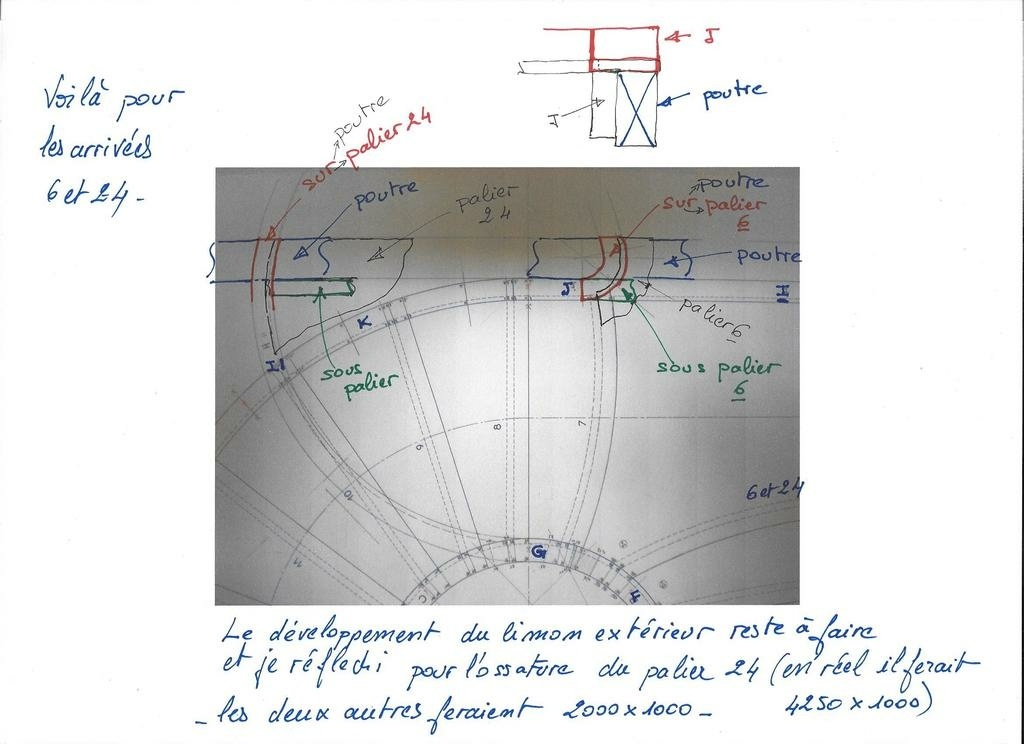 Voilà pour
les arrivées
6 et 24 -
J
poutre
J
poutre
sur palier 24
poutre
palier
24
poutre
sur palier
6
poutre
J
II
palier 6
K
II
sous
palier
sous palier
6
7
8
9
10
11
6 et 24
G
C
Le développement du limon extérieur reste à faire
et je réflechi pour l'ossature du palier 24 (en réel il ferait
4250 x 1000)
- les deux autres feraient 2000 x 1000 -